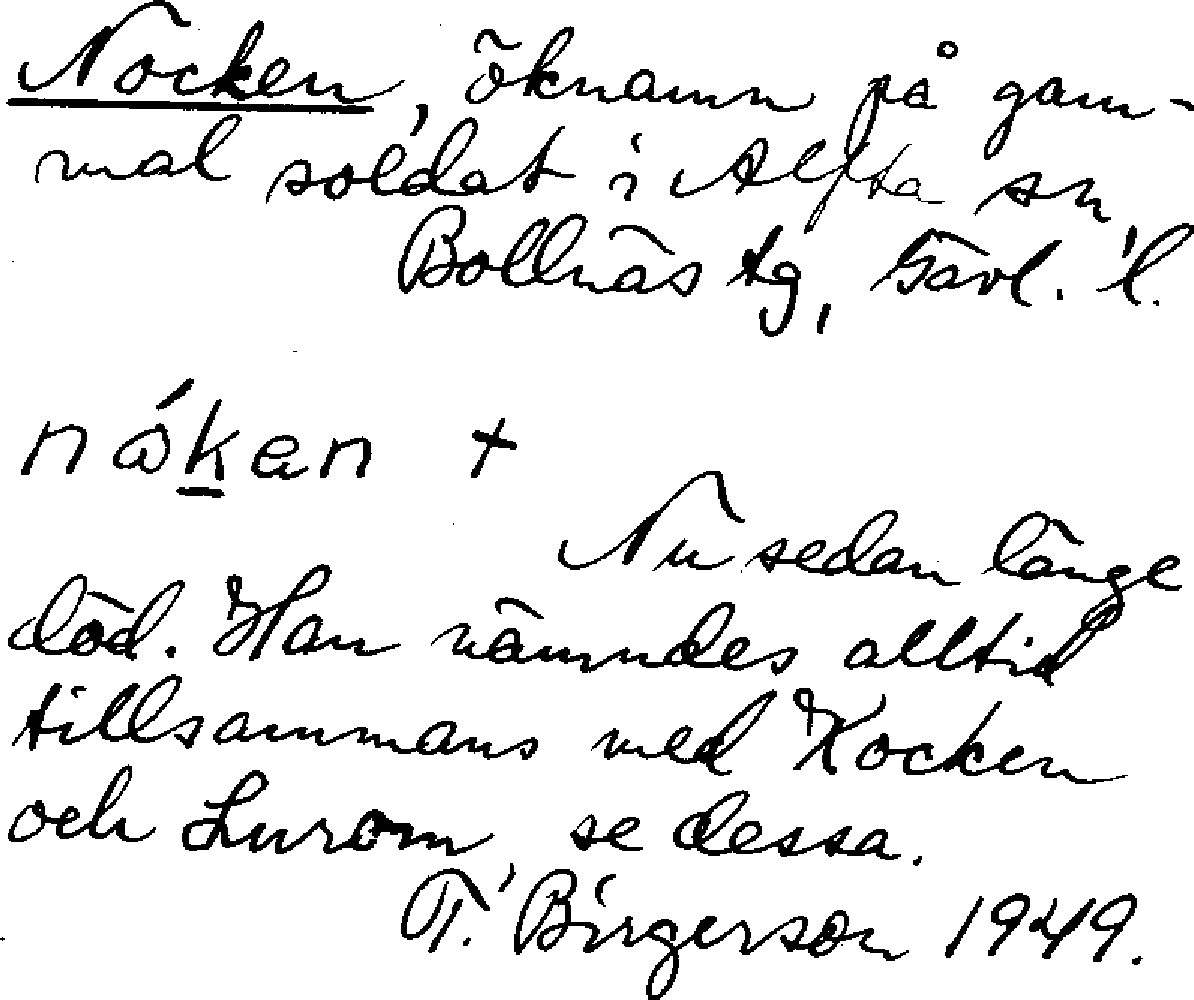 Nocken, öknamn på gam-
mal soldat i Alfta sn,
Bollnäs tg, Gävl. l.
nåken +
Nu sedan länge
död. Han nämndes alltid
tillsammans med Kocken
och Lurom, se dessa.
T. Birgerson 1949.